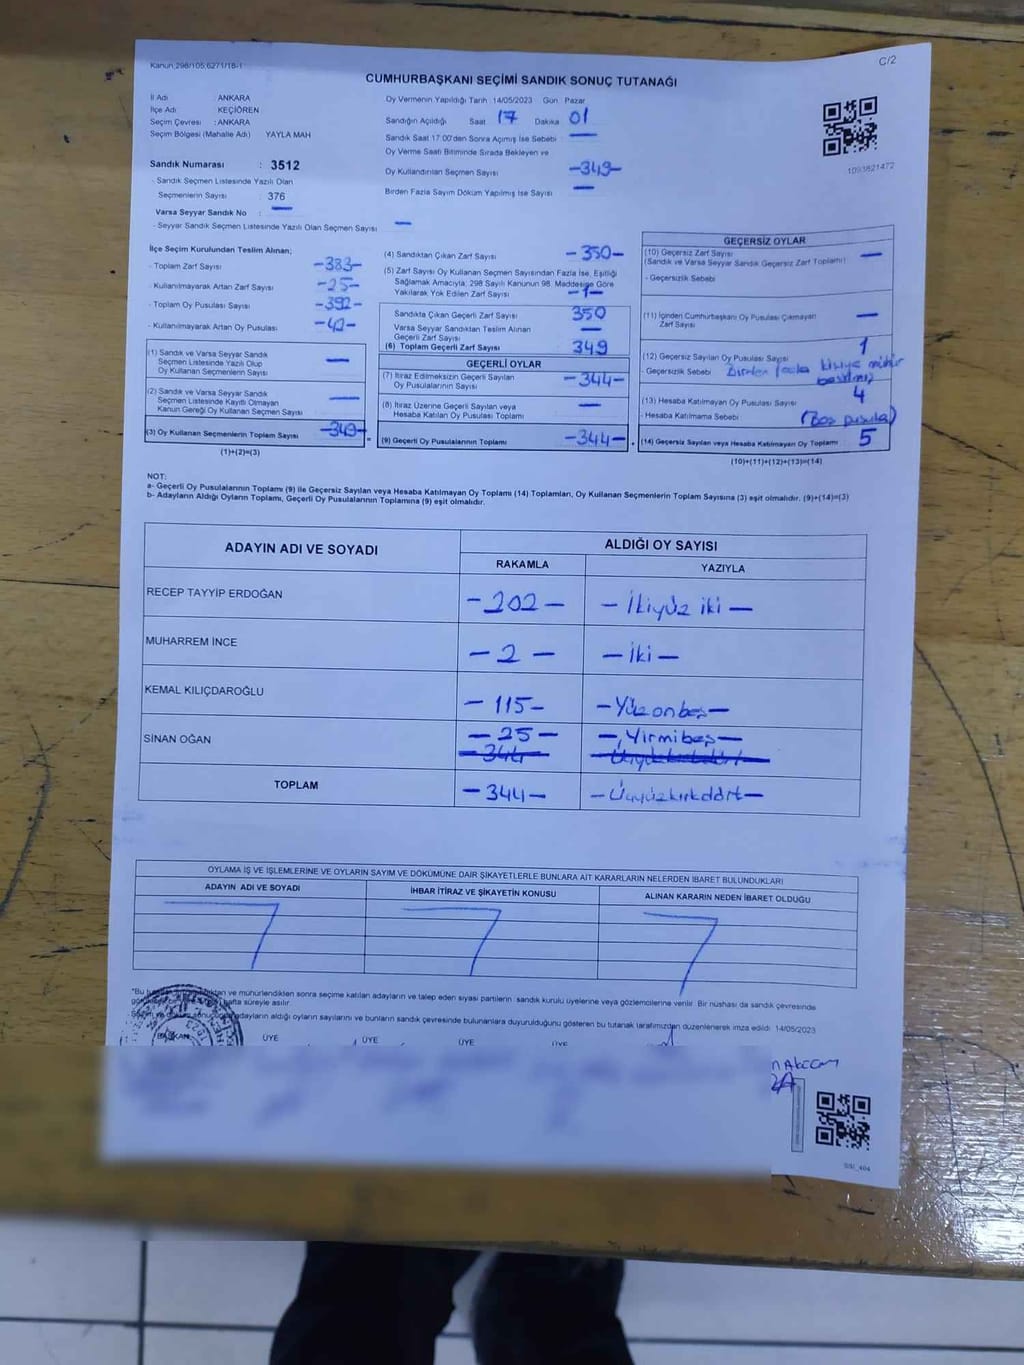 Kanun:298/105,6271/18-1
C/2
CUMHURBAŞKANI SEÇİMİ SANDIK SONUÇ TUTANAĞI
İl Adı : ANKARA
İlçe Adı : KEÇİÖREN
Seçim Çevresi : ANKARA
Seçim Bölgesi (Mahalle Adı) YAYLA MAH
Sandık Numarası : 3512
- Sandık Seçmen Listesinde Yazılı Olan
Seçmenlerin Sayısı : 376
Varsa Seyyar Sandık No : —
- Seyyar Sandık Seçmen Listesinde Yazılı Olan Seçmen Sayısı —
Oy Vermenin Yapıldığı Tarih 14/05/2023 Gün Pazar
Sandığın Açıldığı Saat 17 Dakika 01
Sandık Saat 17:00'den Sonra Açımış İse Sebebi : —
Oy Verme Saati Bitiminde Sırada Bekleyen ve
Oy Kullandırılan Seçmen Sayısı -349-
Birden Fazla Sayım Döküm Yapılmış İse Sayısı —
1093821472
İlçe Seçim Kurulundan Teslim Alınan;
- Toplam Zarf Sayısı -383-
- Kullanılmayarak Artan Zarf Sayısı -25-
- Toplam Oy Pusulası Sayısı -392-
- Kullanılmayarak Artan Oy Pusulası -42-
(1) Sandık ve Varsa Seyyar Sandık
Seçmen Listesinde Yazılı Olup
Oy Kullanan Seçmenlerin Sayısı —
(2) Sandık ve Varsa Seyyar Sandık
Seçmen Listesinde Kayıtlı Olmayan
Kanun Gereği Oy Kullanan Seçmen Sayısı —
(3) Oy Kullanan Seçmenlerin Toplam Sayısı -349-
(1)+(2)=(3)
(4) Sandıktan Çıkan Zarf Sayısı -350-
(5) Zarf Sayısı Oy Kullanan Seçmen Sayısından Fazla İse, Eşitliği
Sağlamak Amacıyla, 298 Sayılı Kanunun 98. Maddesine Göre
Yakılarak Yok Edilen Zarf Sayısı -1-
Sandıkta Çıkan Geçerli Zarf Sayısı 350
Varsa Seyyar Sandıktan Teslim Alınan
Geçerli Zarf Sayısı —
(6) Toplam Geçerli Zarf Sayısı 349
GEÇERLİ OYLAR
(7) İtiraz Edilmeksizin Geçerli Sayılan
Oy Pusulalarının Sayısı -344-
(8) İtiraz Üzerine Geçerli Sayılan veya
Hesaba Katılan Oy Pusulası Toplamı —
(9) Geçerli Oy Pusulalarının Toplamı -344-
GEÇERSİZ OYLAR
(10) Geçersiz Zarf Sayısı
(Sandık ve Varsa Seyyar Sandık Geçersiz Zarf Toplamı) —
- Geçersizlik Sebebi
(11) İçinden Cumhurbaşkanı Oy Pusulası Çıkmayan
Zarf Sayısı —
(12) Geçersiz Sayılan Oy Pusulası Sayısı 1
- Geçersizlik Sebebi Birden fazla kişiye mühür
basılmış
(13) Hesaba Katılmayan Oy Pusulası Sayısı 4
- Hesaba Katılmama Sebebi (Boş pusula)
(14) Geçersiz Sayılan veya Hesaba Katılmayan Oy Toplamı 5
(10)+(11)+(12)+(13)=(14)
NOT:
a- Geçerli Oy Pusulalarının Toplamı (9) ile Geçersiz Sayılan veya Hesaba Katılmayan Oy Toplamı (14) Toplamları, Oy Kullanan Seçmenlerin Toplam Sayısına (3) eşit olmalıdır. (9)+(14)=(3)
b- Adayların Aldığı Oyların Toplamı, Geçerli Oy Pusulalarının Toplamına (9) eşit olmalıdır.
ADAYIN ADI VE SOYADI ALDIĞI OY SAYISI
RAKAMLA YAZIYLA
RECEP TAYYİP ERDOĞAN -202- -İkiyüz iki-
MUHARREM İNCE -2- -İki-
KEMAL KILIÇDAROĞLU -115- -Yüzonbeş-
SİNAN OĞAN -25- -Yirmibeş-
-344-
TOPLAM -344- -Üçyüzkırkdört-
OYLAMA İŞ VE İŞLEMLERİNE VE OYLARIN SAYIM VE DÖKÜMÜNE DAİR ŞİKAYETLERLE BUNLARA AİT KARARLARIN NELERDEN İBARET BULUNDUKLARI
ADAYIN ADI VE SOYADI İHBAR İTİRAZ VE ŞİKAYETİN KONUSU ALINAN KARARIN NEDEN İBARET OLDUĞU
*Bu ve mühürlendikten sonra seçime katılan adayların ve talep eden siyasi partilerin sandık kurulu üyelerine veya gözlemcilerine verilir. Bir nüshası da sandık çevresinde
hafta süreyle asılır.
adayların aldığı oyların sayılarını ve bunların sandık çevresinde bulunanlara duyurulduğunu gösteren bu tutanak tarafımızdan düzenlenerek imza edildi. 14/05/2023
BAŞKAN ÜYE ÜYE ÜYE ÜYE